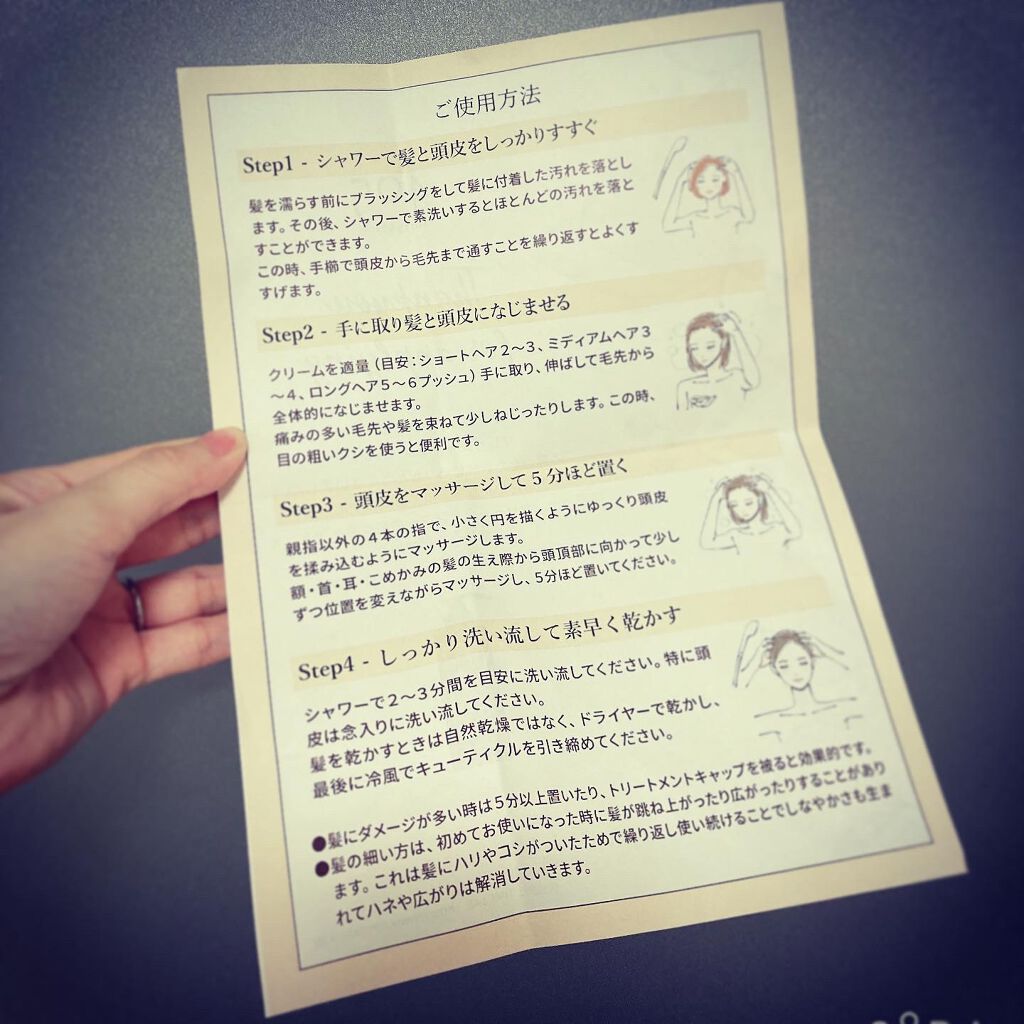 ご使用方法
Step1 - シャワーで髪と頭皮をしっかりすすぐ
髪を濡らす前にブラッシングをして髪に付着した汚れを落とし
ます。その後、シャワーで素洗いするとほとんどの汚れを落と
すことができます。
この時、手櫛で頭皮から毛先まで通すことを繰り返すとよくす
すげます。
Step2 - 手に取り髪と頭皮になじませる
クリームを適量（目安：ショートヘア２～３、ミディアムヘア３
～４、ロングヘア５～６プッシュ）手に取り、伸ばして毛先から
全体的になじませます。
痛みの多い毛先や髪を束ねて少しねじったりします。この時、
目の粗いクシを使うと便利です。
Step3 - 頭皮をマッサージして５分ほど置く
親指以外の４本の指で、小さく円を描くようにゆっくり頭皮
を揉み込むようにマッサージします。
額・首・耳・こめかみの髪の生え際から頭頂部に向かって少し
ずつ位置を変えながらマッサージし、５分ほど置いてください。
Step4 - しっかり洗い流して素早く乾かす
シャワーで２～３分間を目安に洗い流してください。特に頭
皮は念入りに洗い流してください。
髪を乾かすときは自然乾燥ではなく、ドライヤーで乾かし、
最後に冷風でキューティクルを引き締めてください。
●髪にダメージが多い時は５分以上置いたり、トリートメントキャップを被ると効果的です。
●髪の細い方は、初めてお使いになった時に髪が跳ね上がったり広がったりすることがあり
ます。これは髪にハリやコシがついたためで繰り返し使い続けることでしなやかさも生ま
れてハネや広がりは解消していきます。